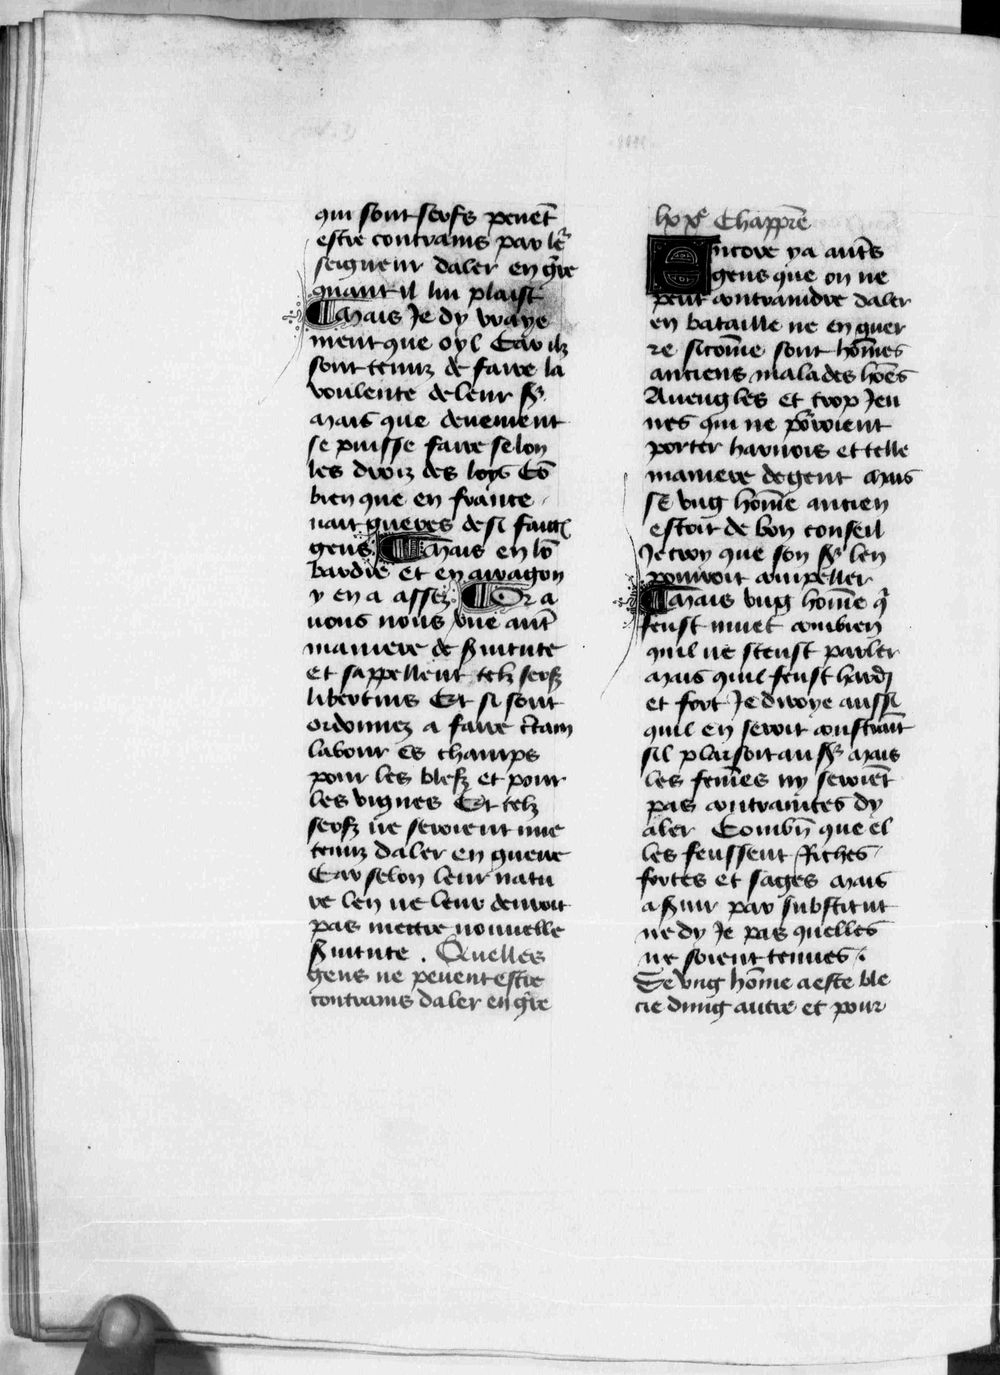 qui sont serfs peuēt
estre contrains par lr̄
seigneur daler en gr̄re
quant il lui plaist
¶ Mais Je dy vraye
ment que oyl Car ilz
sont tenuz de faire la
voulente de leur sr̄
Mais que deuement
se puisse faire selon
les droiz des loys Cō
bien que en france
nait gueres de si faitz
gens ¶ Mais en lō
bardie et en arragon
y en a assez ¶ Or a
uons nous vne autr̄
maniere de s̄uitute
et sappellent telz serfz
libertins Et si sont
ordonnez a faire c̄tain
labour es champs
pour les blefz et pour
les vignes Et telz
serfz ne seroient mie
tenuz daler en guerre
Car selon leur natu
re len ne leur deuroit
pas mettre nouuelle
s̄uitute . Quelles
gens ne peuent estre
contrains daler en gr̄re
Chappr̄e
Encore ya autr̄s
gens que on ne
peut contraindre daler
en bataille ne en guer
re sicom̄e sont hōmes
anciens malades hōēs
Aueugles et trop Jeu
nes qui ne pōrroient
porter harnois et telle
maniere de gent Mais
se vng hom̄e ancien
estoit de bon conseil
Je croy que son sr̄ len
pourroit compeller
¶ Mais vng hom̄e q̄
feust muet combien
quil ne sceust parler
Mais quil feust hardj
et fort Je diroye aussi
quil en seroit constraīt
sil plaisoit au sr̄ Mais
les fem̄es ny seroiēt
pas contraintes dy
aler Combn̄ que el
les feussent Riches
fortes et sages Mais
a s̄uir par substitut
ne dy Je pas quelles
ne soient tenues
Se vng hōme a este ble
cie dung autre et pour